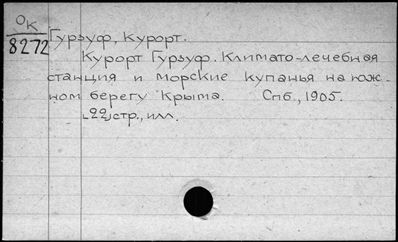 ОК
8272
Гурзуф, курорт.
Курорт Гурзуф. Климато-лечебная
станция и морские купанья на юж-
ном берегу Крыма. Спб., 1905.
[22] стр., илл.